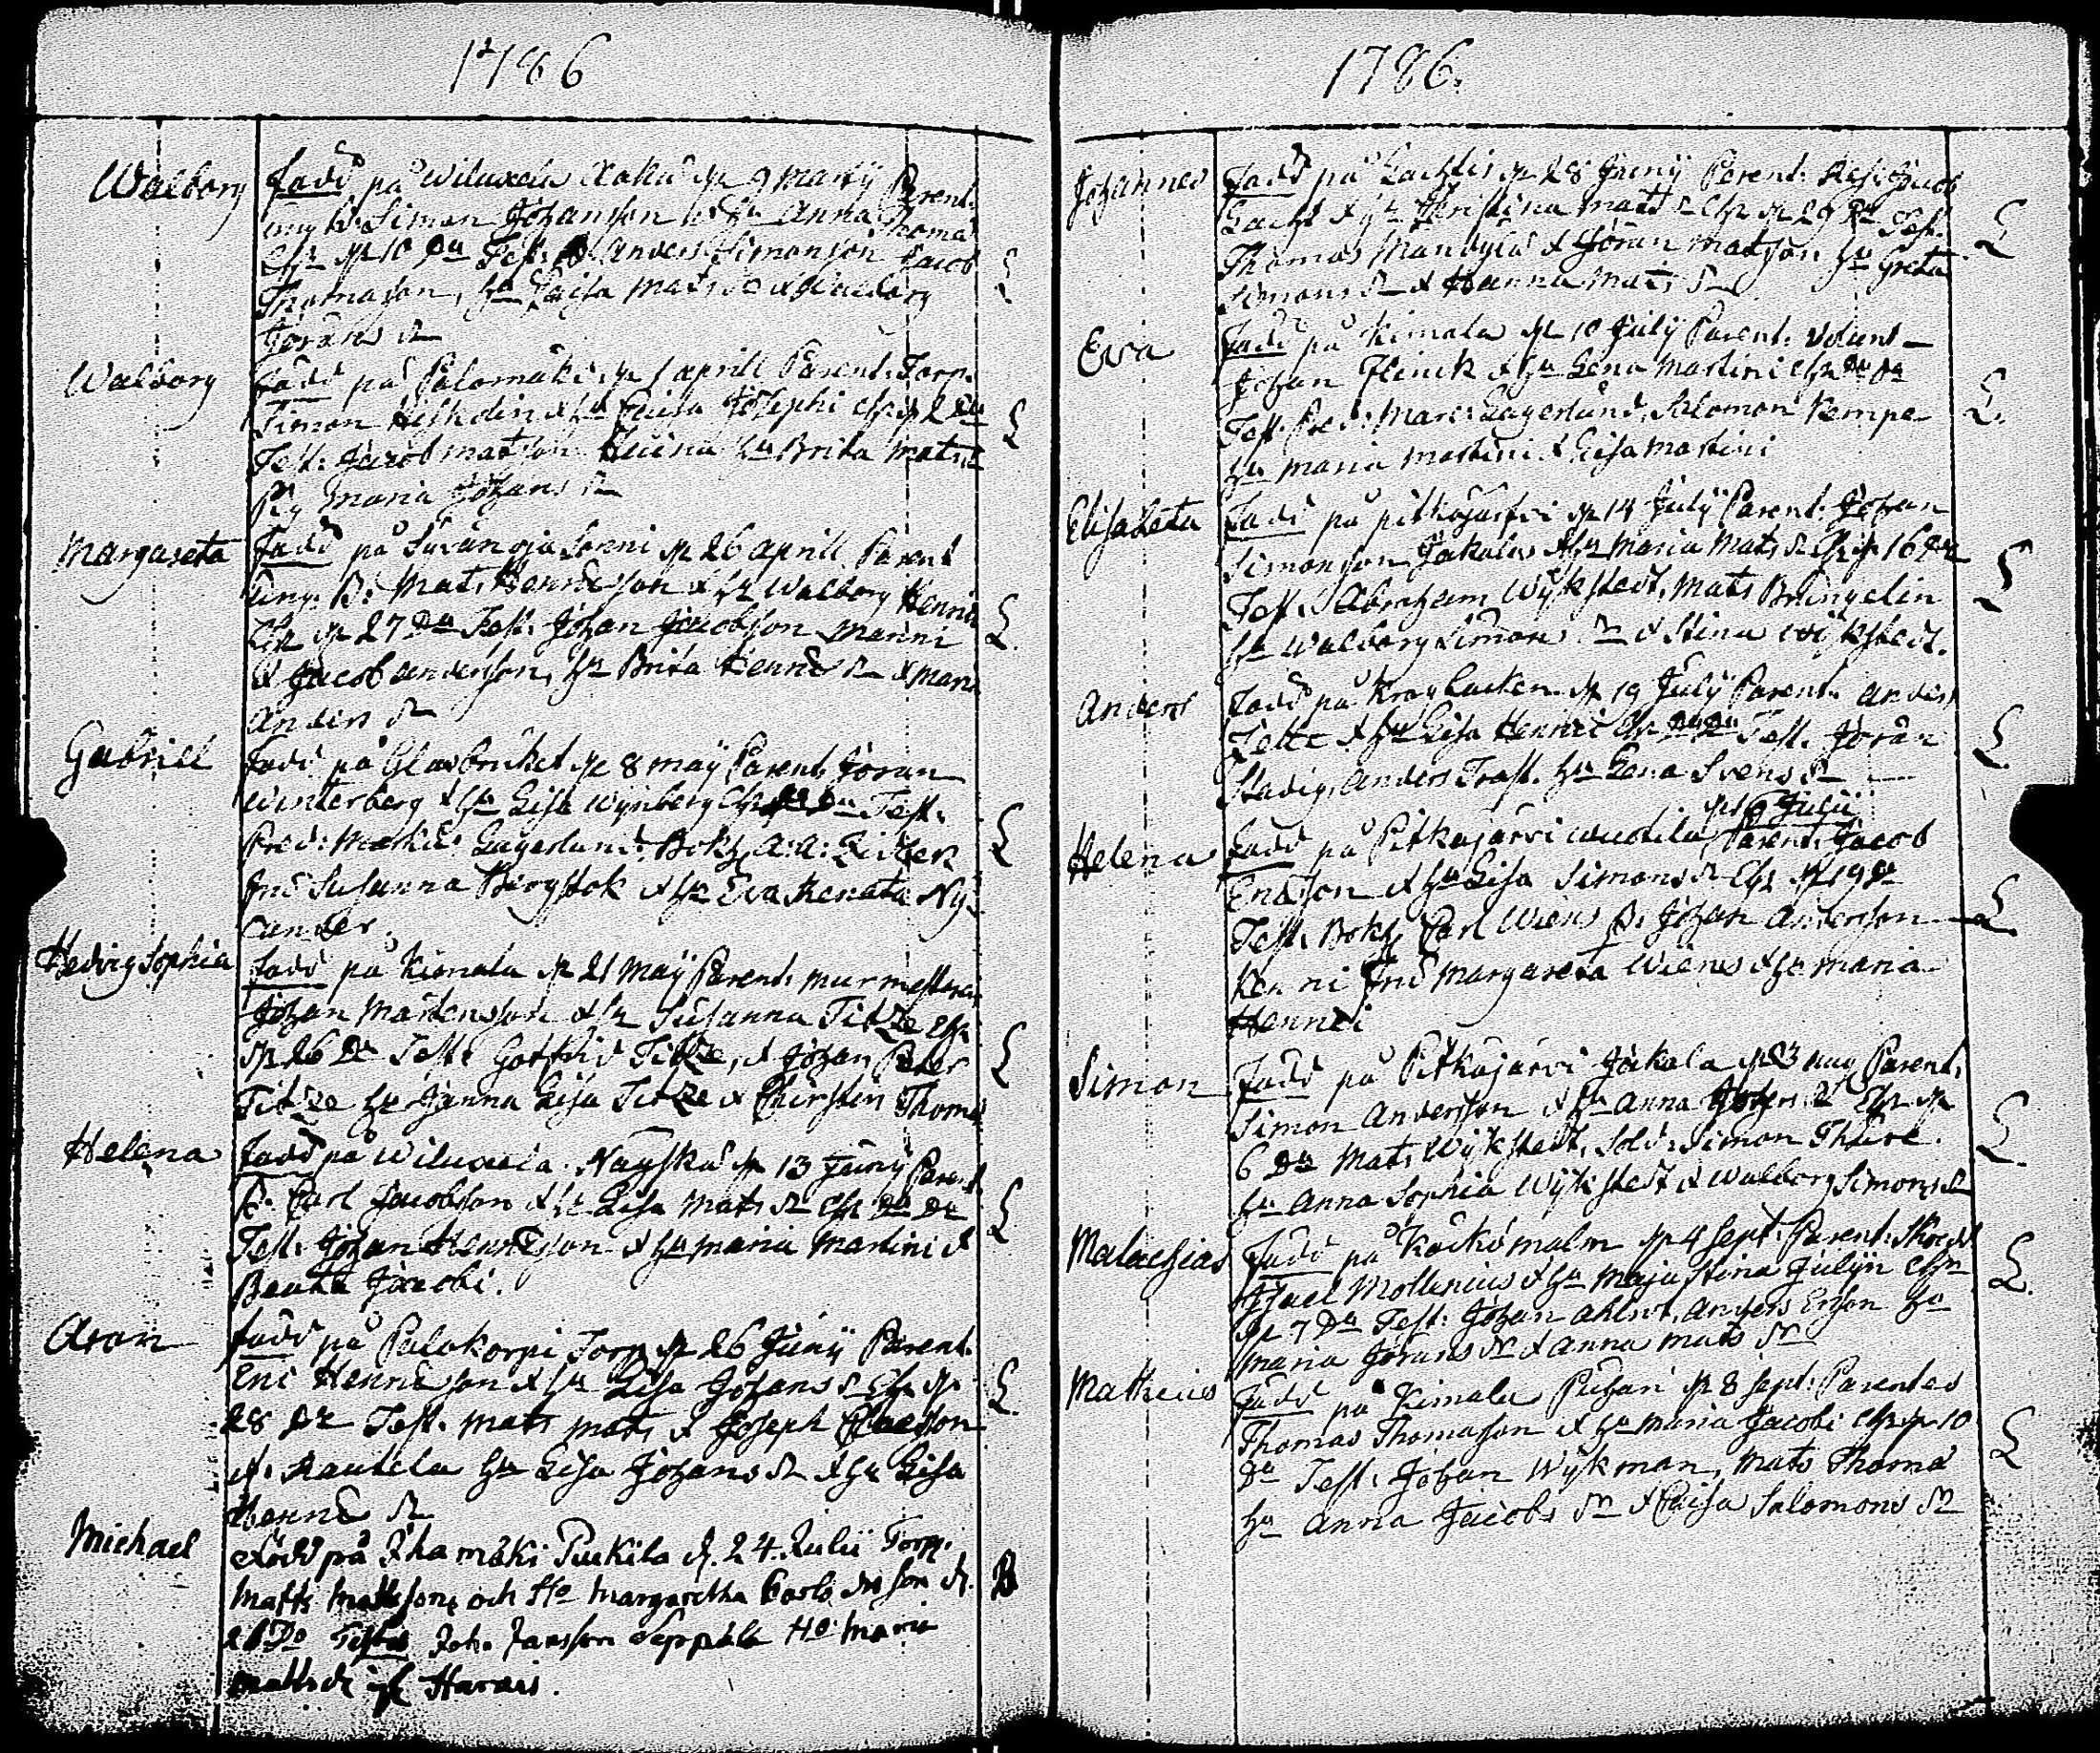 1786
Walborg
född på Wiluxela Xaku d 9 martij Parent.
Simon Johansson h: hu Anna Thomæ
Chr d 10 Du Test: Anders Simonson Jacob
Thomasson, hu Caisa Mats dr & Walborg
Jörans dr
Walborg
född på Palomäki d 1 aprill Parent. Torp.
Simon & hu Caisa Josephi Chr d 2 Du
Test: Jacob Matsson hu Brita Mats dr
Pig Maria Johans dr
Margareta
född på Syvänoja Sonni d 26 aprill Parent
ung. B: Mats Henricsson & hu Walborg Henric
Chr d 27 Du Test: Johan Jacobsson Manni
& Jacob Andersson, hu Brita Henric dr & Maria
Anders dr
Gabriell
född på Glasbruket d 8 maij Parent Jöran
Winterberg & hu Lisa Wynberg Chr Du Test:
Pred: Lagerlund: Bokh A: A:
fru Susanna & hu Eva Renata Ny-
cander.
Hedvig Sophia
född på Kimala d 21 Maij Parent: murmestaren
Johan Mårtensson & hu Susanna Titze Chr
d 26 Du Test: Gotfrid Titze, & Johan Peter
Titze hu Janna Lisa Titze & Chirstin Thomæ
Helena
född på Wiluxela Nayskü d 13 Junij Parent
B: Carl Jacobsson & hu Lisa Mats dr Chr Du Du
Test: Johan Henricsson & hu Maria Martini &
Beata Jacobi.
Aron
född på Palokorpi Torp d 26 Junij Parent
Eric Henricsson & hu Lisa Johans dr Chr d
28 Du Test. Mats Mats & Joseph Claesson
Rautela hu Lisa Johans dr & hu Lisa
Henric dr
Michael
Född på Ihamäki Puckila d. 24 Julii Torp.
Matts Mattsson och Ho Margaretha Carls dr
Do Johansson Seppälä Ho Maria
Matts dr Harais.
B
1786.
Johannes
född på Lachtis d 28 Junij Parent: Jacob
& hu Christina Mats dr Chr d 29 Du Test.
Thomas Mandylin & Jöran Matsson hu Greta
Simons dr & Hanna Mats dr
Eva
född på Kimala d 10 Julij Parent: Volunt
Johan Flinck & hu Lena Martini Chr Du Du
Test: Pred: Marc: Lagerlund, Salomon Kempe
hu Maria Martini & Lisa Martini
Elisabeta
född på Pitkäjärfvi d 14 Julij Parent. Johan
Simonson Jakala & hu Maria Mats dr Chr d 16 Du
Test: Abraham Wijkstedt, Mats Bringelin
hu Walborg Simons dr & Stina Wijkstedt.
Anders
född på Krogbacken d 19 Julij Parent: Anders
& hu Lisa Henrici Chr Du Du Test. Jöran
Stadig, Anders Trast. hu Lena Svens dr
Helena
d 16 Julii
född på Pitkäjärvi Wuotila Parent. Jacob
Ericsson & hu Lisa Simons dr Chr d 19 Du
Test. Bokh Carl Wiens B. Johan Andersson
Kenni fru Margareta Wiens & hu Maria
Henrici
Simon
född på Pitkäjärvi Jäkala d 3 aug Parent.
Simon Andersson & hu Anna Johans dr Chr d
6 Du Mats Wijkstedt, Sold: Simon Thure.
hu Anna Sophia Wijkstedt & Walborg Simons dr
Malachias
född på Kaikómalm d 4 Sept. Parent:
Mollenius & hu Maja Stina Julijn Chr
d 7 Du Test: Johan Anders Ersson hu
Maria Jörans dr & Anna Mats dr
Matheus
född på Kimala Puhari d 8 sept. Parentes
Thomas Thomasson & hu Maria Jacobi Chr d 10
Du Test: Johan Wijkman, Mats Thomæ
hu Anna Jacobs dr & Caisa Salomons dr